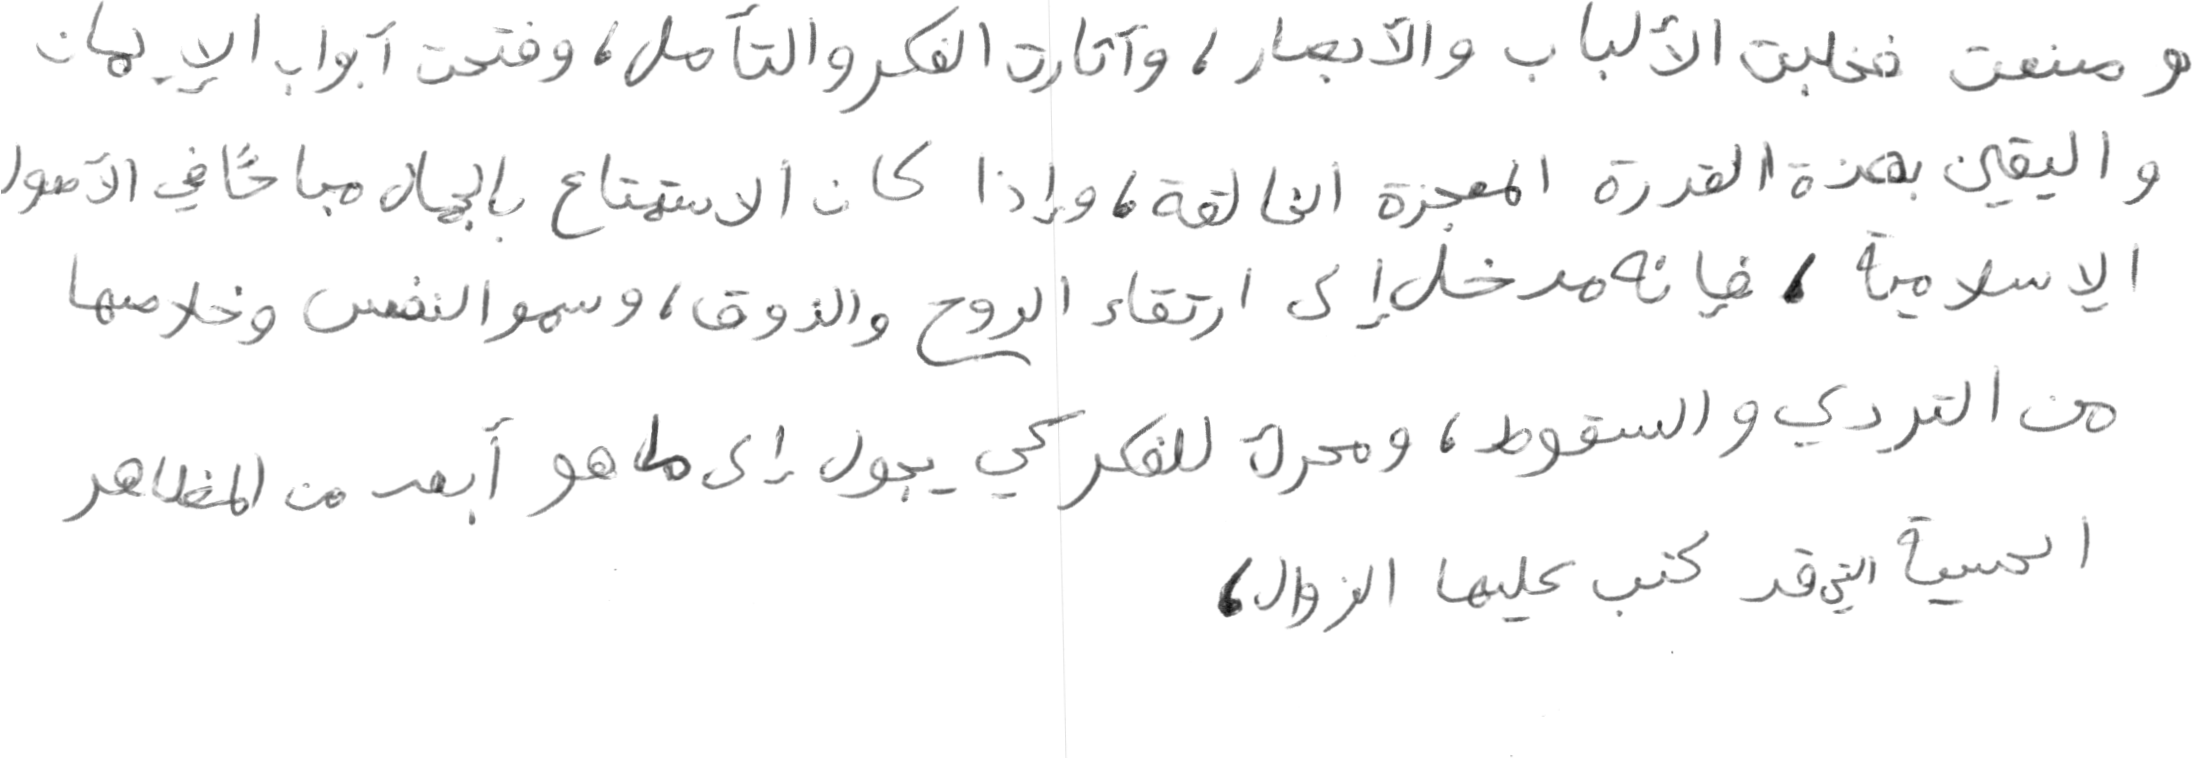 و صنعت فخلبت الألباب والأبصار، وأثارت الفكر والتأمل، وفتحت أبواب الإيمان
واليقين بهذة القدرة المعجزة الخالقة، وإذا كان الاستمتاع بالجمال مباحًا في الأصول
الإسلامية، فإنه مدخل إلى ارتقاء الروح والذوق، وسمو النفس وخلاصها
من التردي والسقوط، ومحرك للفكر كي يجول إلى ما هو أبعد من المظاهر
الحسية التي قد كتب عليها الزوال،